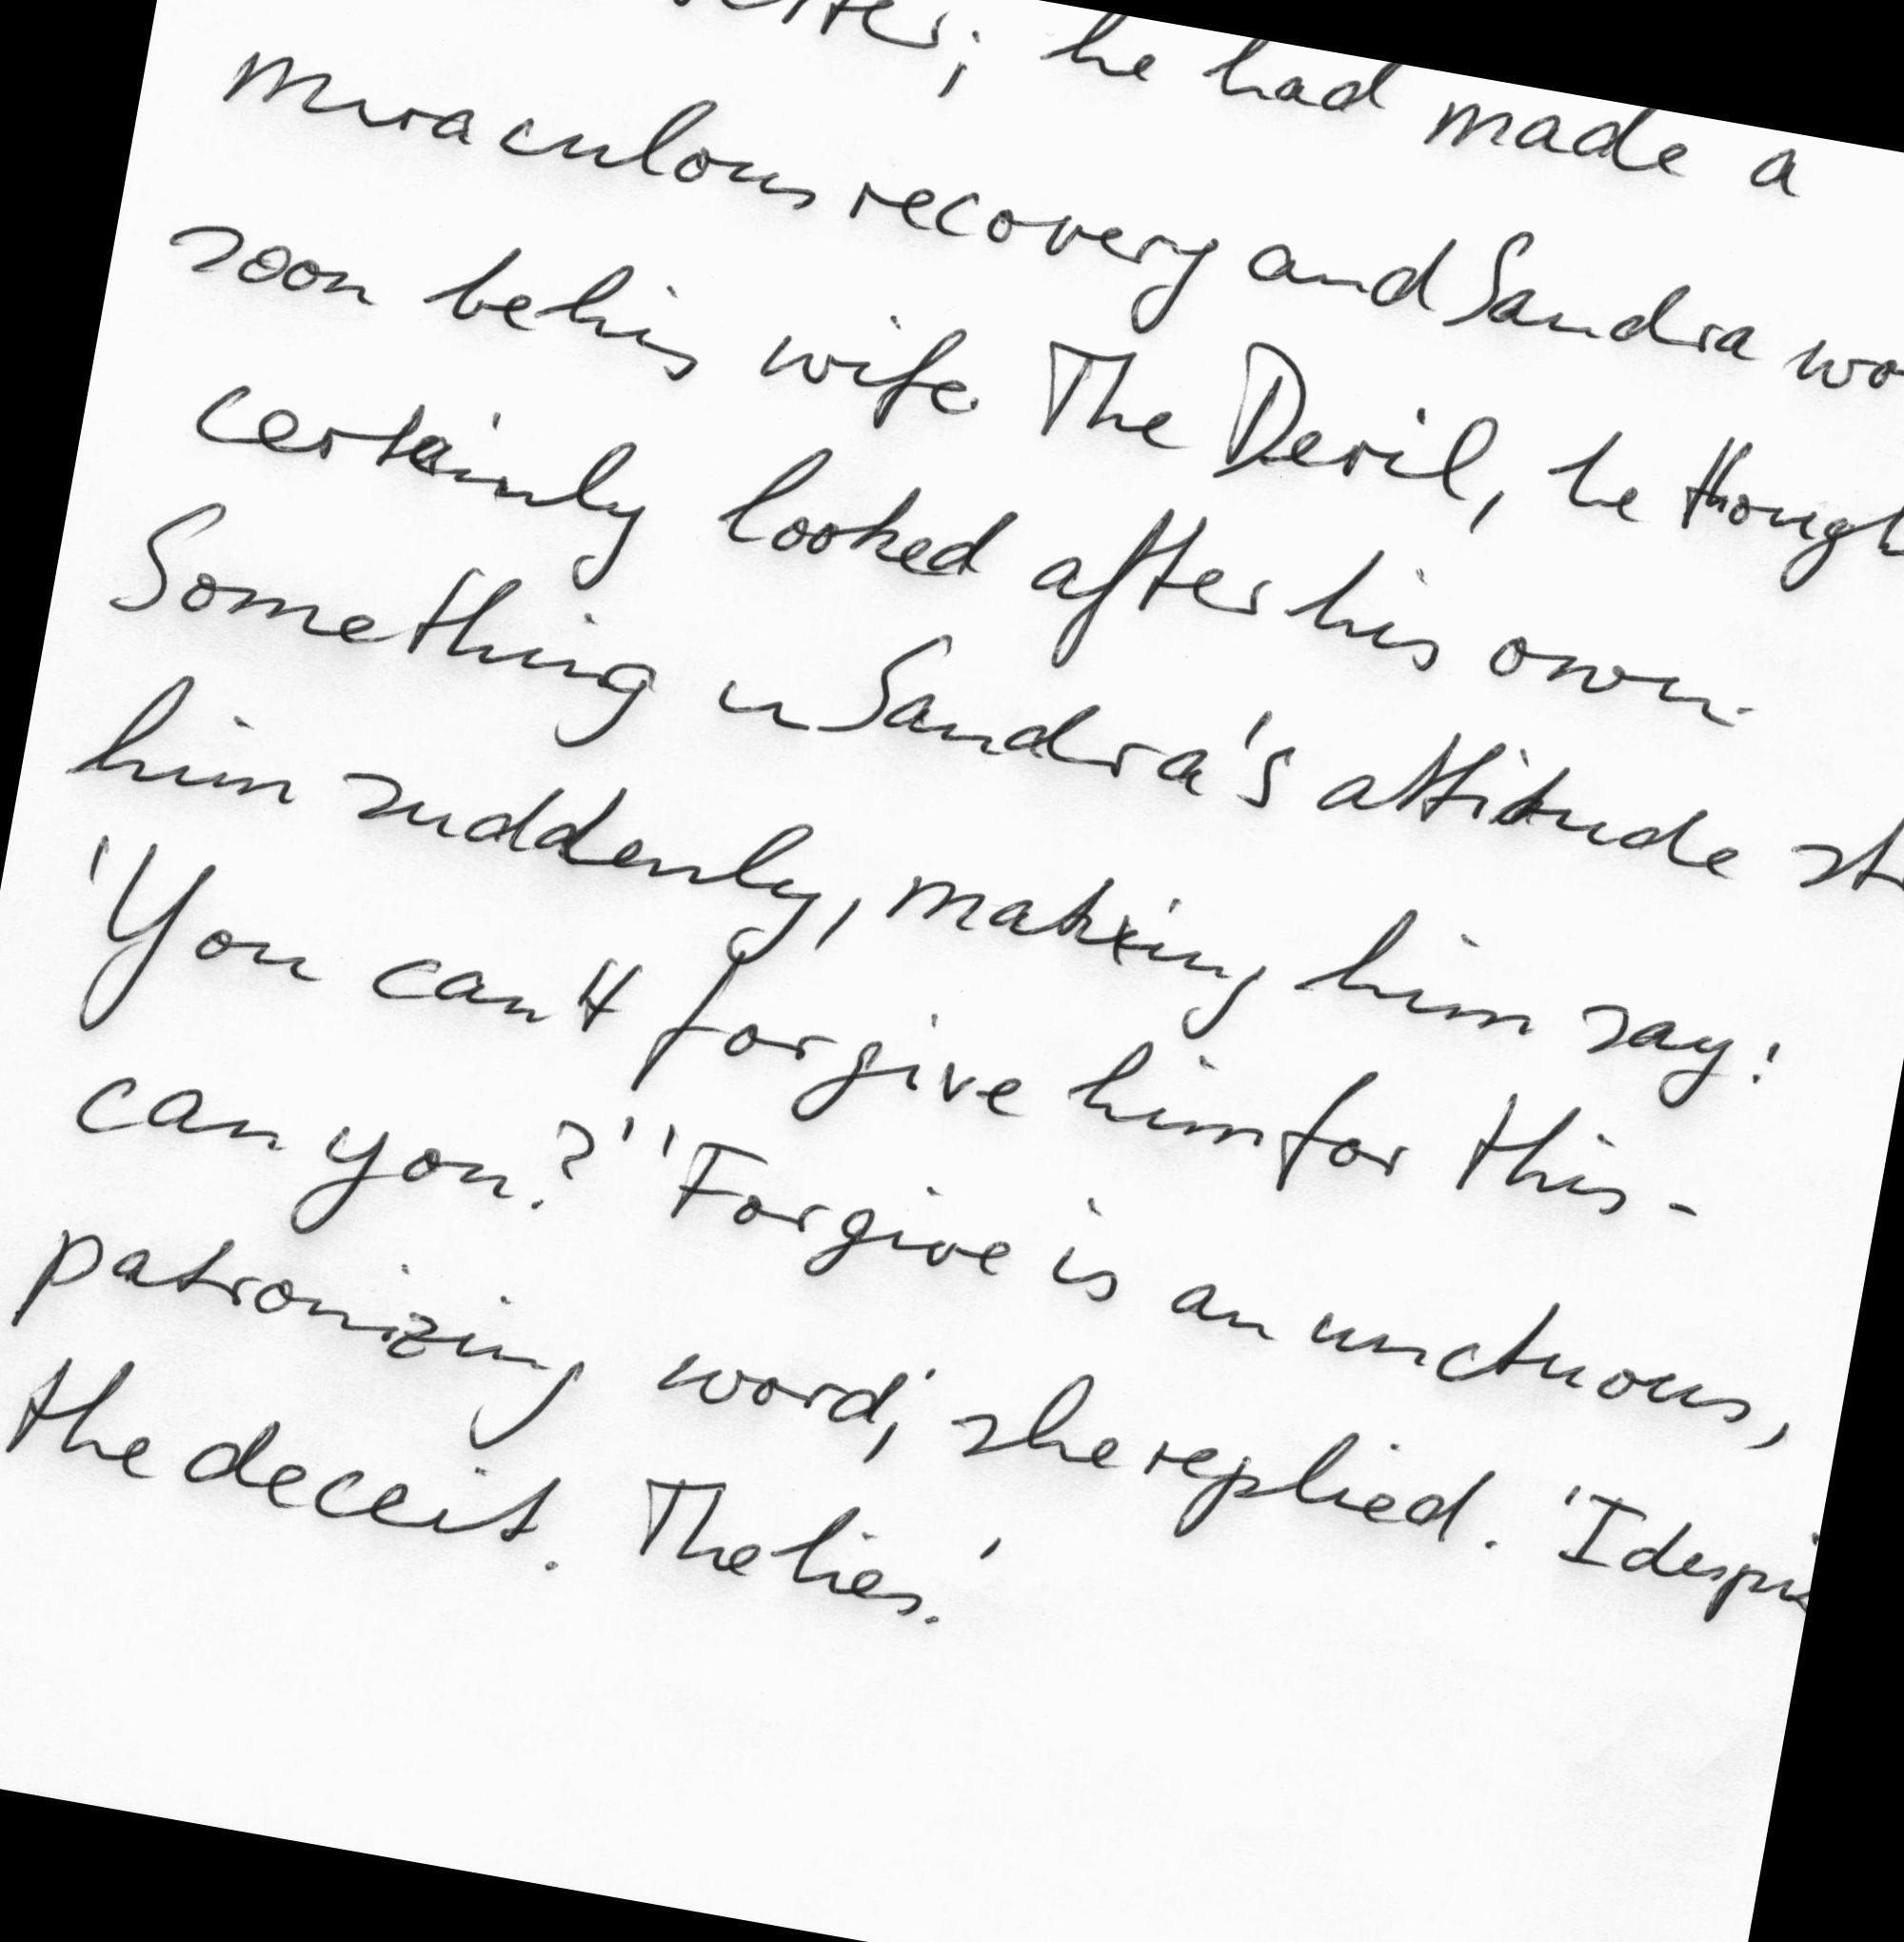 he had made a
miraculous recovery and Sandra
soon be his wife. The Devil, he
certainly looked after his own.
Something in Sandra's attitude
him suddenly, making him say:
'You can't forgive him for this -
can you?' 'Forgive is an unctuous,
patronizing word,' she replied. 'I
the deceit. The lies.'